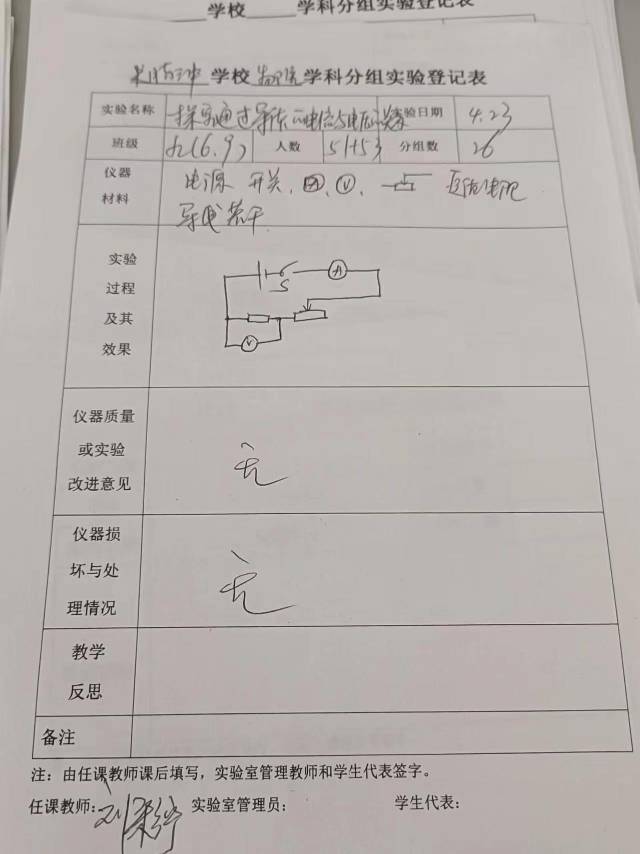 学校 学科分组实验登记表
学校 物理 学科分组实验登记表
实验名称 探究通过导体的电流与电压的关系 实验日期 4.23
班级 九(6.9) 人数 51+53 分组数 26
仪器
材料
电源 开关、Ⓐ、Ⓥ、
导线若干
实验
过程
及其
效果
A
S
V
仪器质量
或实验
改进意见
无
仪器损
坏与处
理情况
无
教学
反思
备注
注：由任课教师课后填写，实验室管理教师和学生代表签字。
任课教师： 实验室管理员： 学生代表：